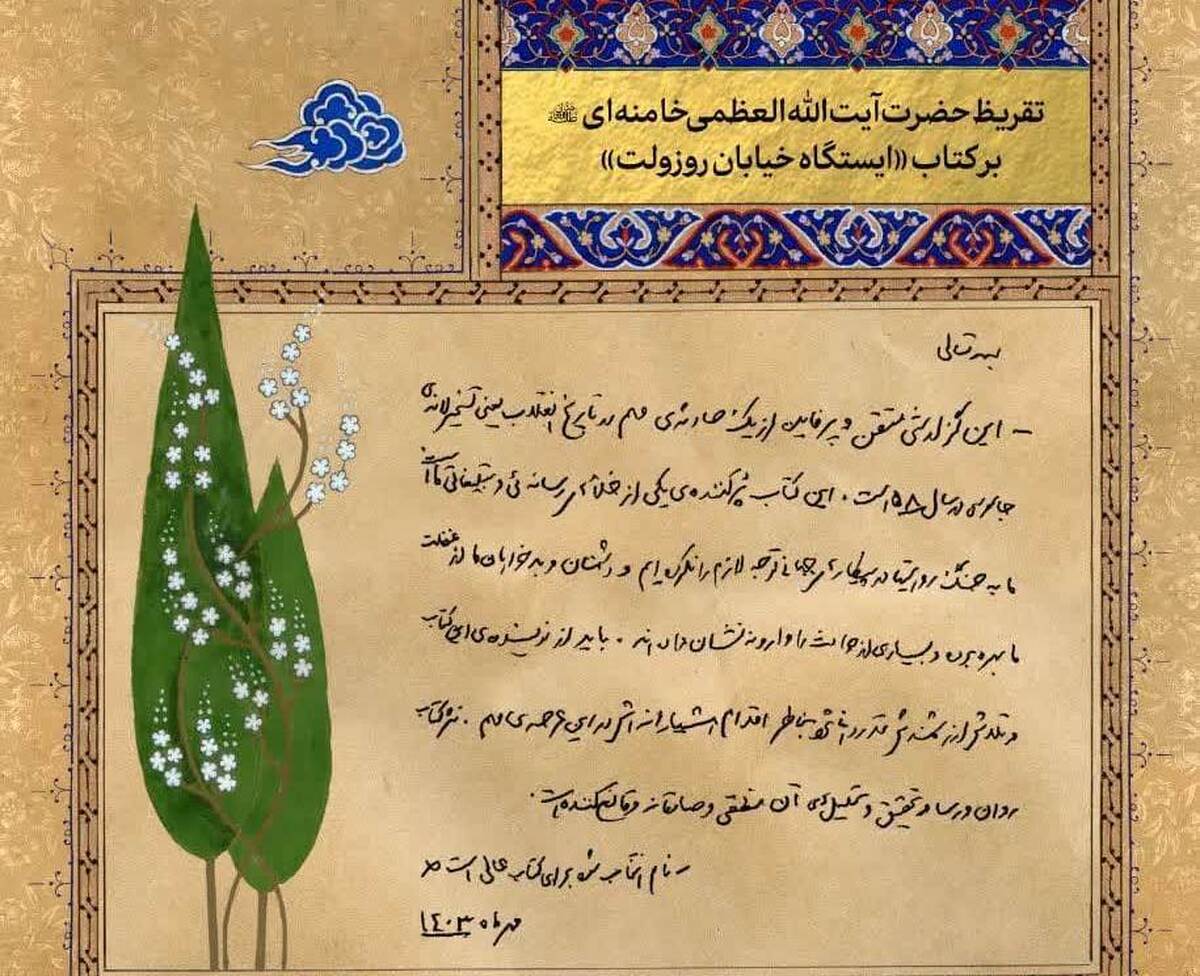 تقریظ حضرت آیت الله العظمی خامنه‌ای
بر کتاب «ایستگاه خیابان روزولت»
بسمه تعالی
- این گزارشی متقن و پرفایده از یک حادثه‌ی مهم در تاریخ انقلاب یعنی تسخیر لانه‌ی
جاسوسی در سال ۵۸ است. این کتاب پرکننده‌ی یکی از خلأهای رسانه‌ئی و تبلیغاتی ما است
ما به جنگ روایتها در پیکارهای جهانی توجه لازم را نکرده‌ایم و دشمنان و بدخواهان ما از غفلت
ما بهره برده و بسیاری از حوادث را وارونه نشان داده‌اند. باید از نویسنده‌ی این کتاب
و تلاش ارزشمندش قدردانی بخاطر اقدام هشیارانه‌اش در این عرصه‌ی مهم. نثر کتاب
روان و رسا و تحقیق و تحلیل‌های آن منطقی و صادقانه و قانع‌کننده است.
- نام انتخاب شده برای کتاب عالی است
مهرماه ۱۴۰۳